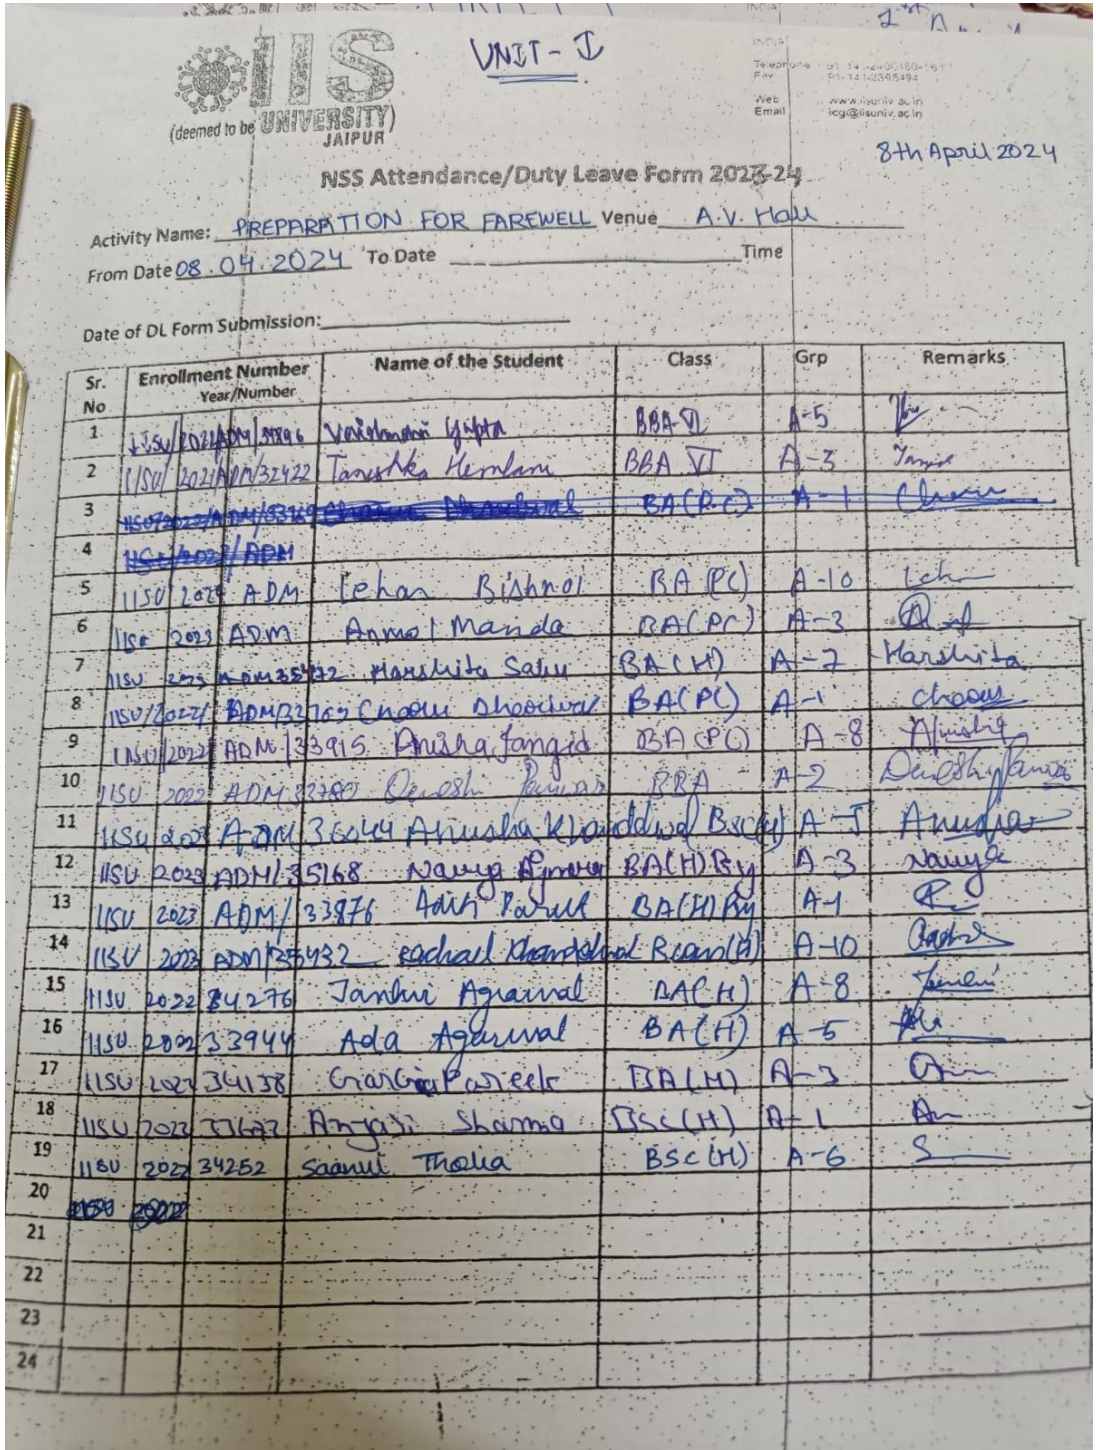 UNIT - I
IIS
(deemed to be UNIVERSITY)
JAIPUR
INDIA
Telephone
Fax 91-141-2395494
Web www.iisuniv.ac.in
Email icg@iisuniv.ac.in
8th April 2024
NSS Attendance/Duty Leave Form 2023-24
Activity Name: PREPARATION FOR FAREWELL Venue A.V. Hall
From Date 08.04.2024 To Date Time
Date of DL Form Submission:
Sr. No Enrollment Number Year/Number Name of the Student Class Grp Remarks
1 IISU/2021/ADM/31896 Vaishnavi Gupta BBA-VI A-5
2 IISU/2021/ADM/32422 Tanishka Hemlani BBA VI A-3
3 BA(P.C) A-1
4 IISU/2022/ADM
5 IISU 2023 ADM Lehar Bishnoi BA (PC) A-10
6 2023 ADM Anmol Manda BA(PC) A-3
7 IISU 2023 ADM 35472 Harshita Sahu BA(H) A-7 Harshita
8 IISU/2022/ ADM/33769 BA(PC) A-1
9 IISU/2022/ ADM/33915 Anisha Jangid BA(PC) A-8 Anisha
10 IISU 2022 ADM 33780 BBA A-2
11 IISU 2023 ADM 36044 Anusha Khandelwal Bsc(H) A-5 Anusha
12 IISU 2023 ADM/35168 Navya BA(H) A-3 Navya
13 IISU 2023 ADM/33876 BA(H) A-1
14 IISU 2023 ADM/35432 Khandelwal A-10
15 IISU 2022 34276 Janhvi Agrawal BA(H) A-8
16 IISU 2022 33944 Ada Agarwal BA(H) A-5
17 IISU 2022 34138 Gargie Pareek BA(H) A-3
18 IISU 2023 33673 Sharma BSc(H) A-1
19 IISU 2022 34252 Saanvi Tholia BSc(H) A-6
20
21
22
23
24